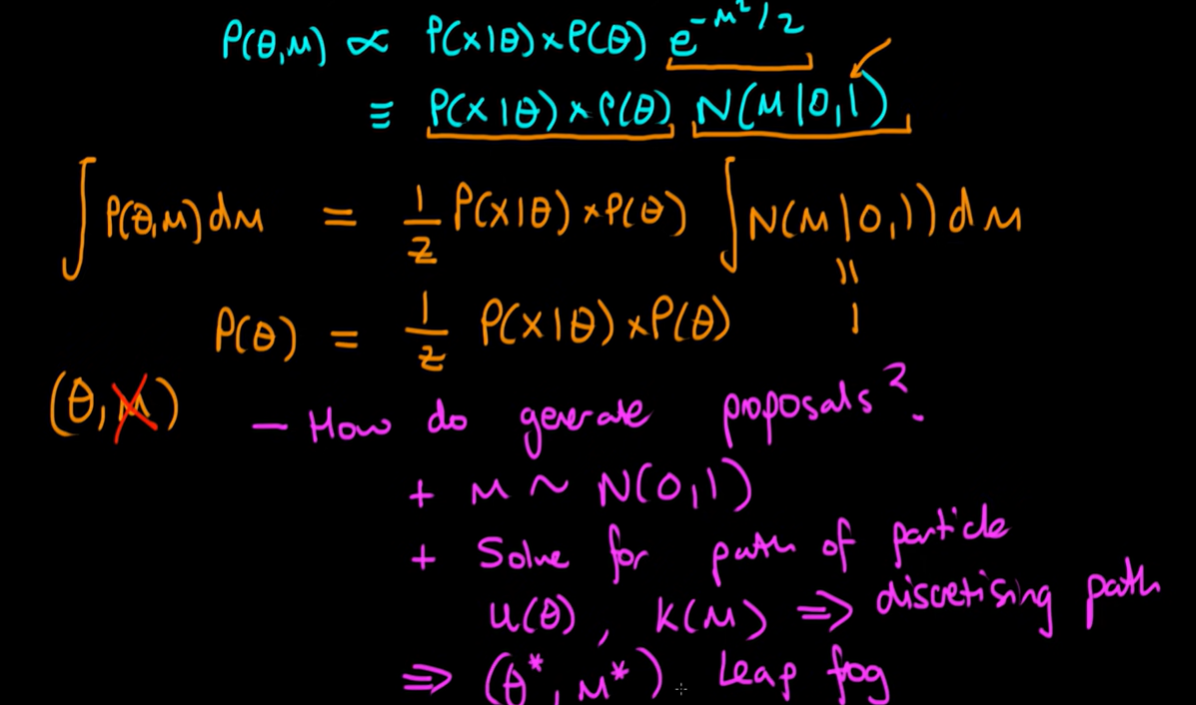 P(θ,M) ∝ P(X|θ)×P(θ) e^{-M²/2}
≡ P(X|θ)×P(θ) N(M|0,1)
∫P(θ,M)dM = 1/Z P(X|θ)×P(θ) ∫N(M|0,1)dM
=
1
P(θ) = 1/Z P(X|θ)×P(θ)
(θ,M)
- How do generate proposals?
+ M ~ N(0,1)
+ Solve for path of particle
U(θ), K(M) ⇒ discretising path
⇒ (θ*, M*) Leap frog